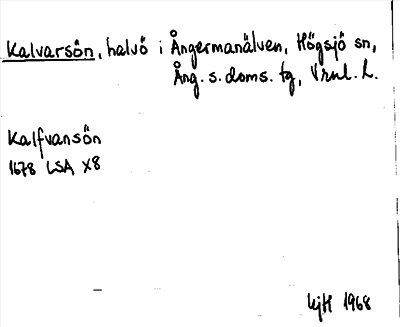 Kalvarsön, halvö i Ångermanälven, Högsjö sn,
Ång. s. doms. tg, Vrnl. L.
Kalfvansön
1678 LSA X8
1968